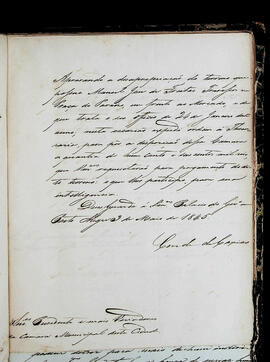 Approvando a desapropriação do terreno que
possue Manoel José de Freitas Travassos na
Praça do Paraizo, em frente ao Mercado, e de
que trata o seu Officio de 24 de Janeiro deste
anno, nesta occasião expeço ordem á Thesou-
raria para pôr a disposição dessa Camara
a quantia de hum conto e seis centos mil reis,
que Vmces. requisitarão para pagamento do di-
to terreno: o que lhes participo para sua
intelligencia.
Deos Guarde á Vmces. Palacio do Governo em
Porto Alegre 3 de Maio de 1845
Conde de Caxias
Snres. Presidente e mais Vereadores
da Camara Municipal desta Cidade.